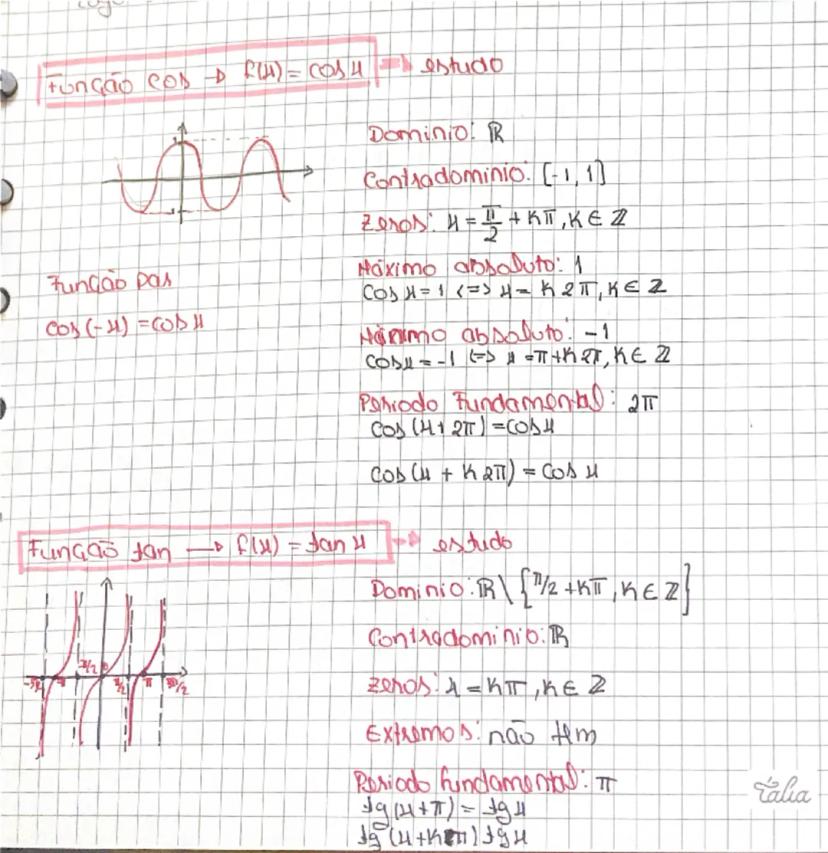 Função cos → f(x) = cos x → estudo
Dominio: ℝ
Contradominio: [-1, 1]
Zeros: x = π/2 + kπ, k ∈ ℤ
Máximo absoluto: 1
cos x = 1 <=> x = k 2π, k ∈ ℤ
Função par
cos(-x) = cos x
Mínimo absoluto: -1
cos x = -1 <=> x = π + k 2π, k ∈ ℤ
Periodo Fundamental: 2π
cos (x + 2π) = cos x
cos (x + k 2π) = cos x
Função tan → f(x) = tan x → estudo
Dominio: ℝ \ {π/2 + kπ, k ∈ ℤ}
Contradominio: ℝ
Zeros: x = kπ, k ∈ ℤ
π/2 π 3π/2
Extremos: não tem
Periodo fundamental: π
tg (x + π) = tg x
tg (x + kπ) tg x
Tália